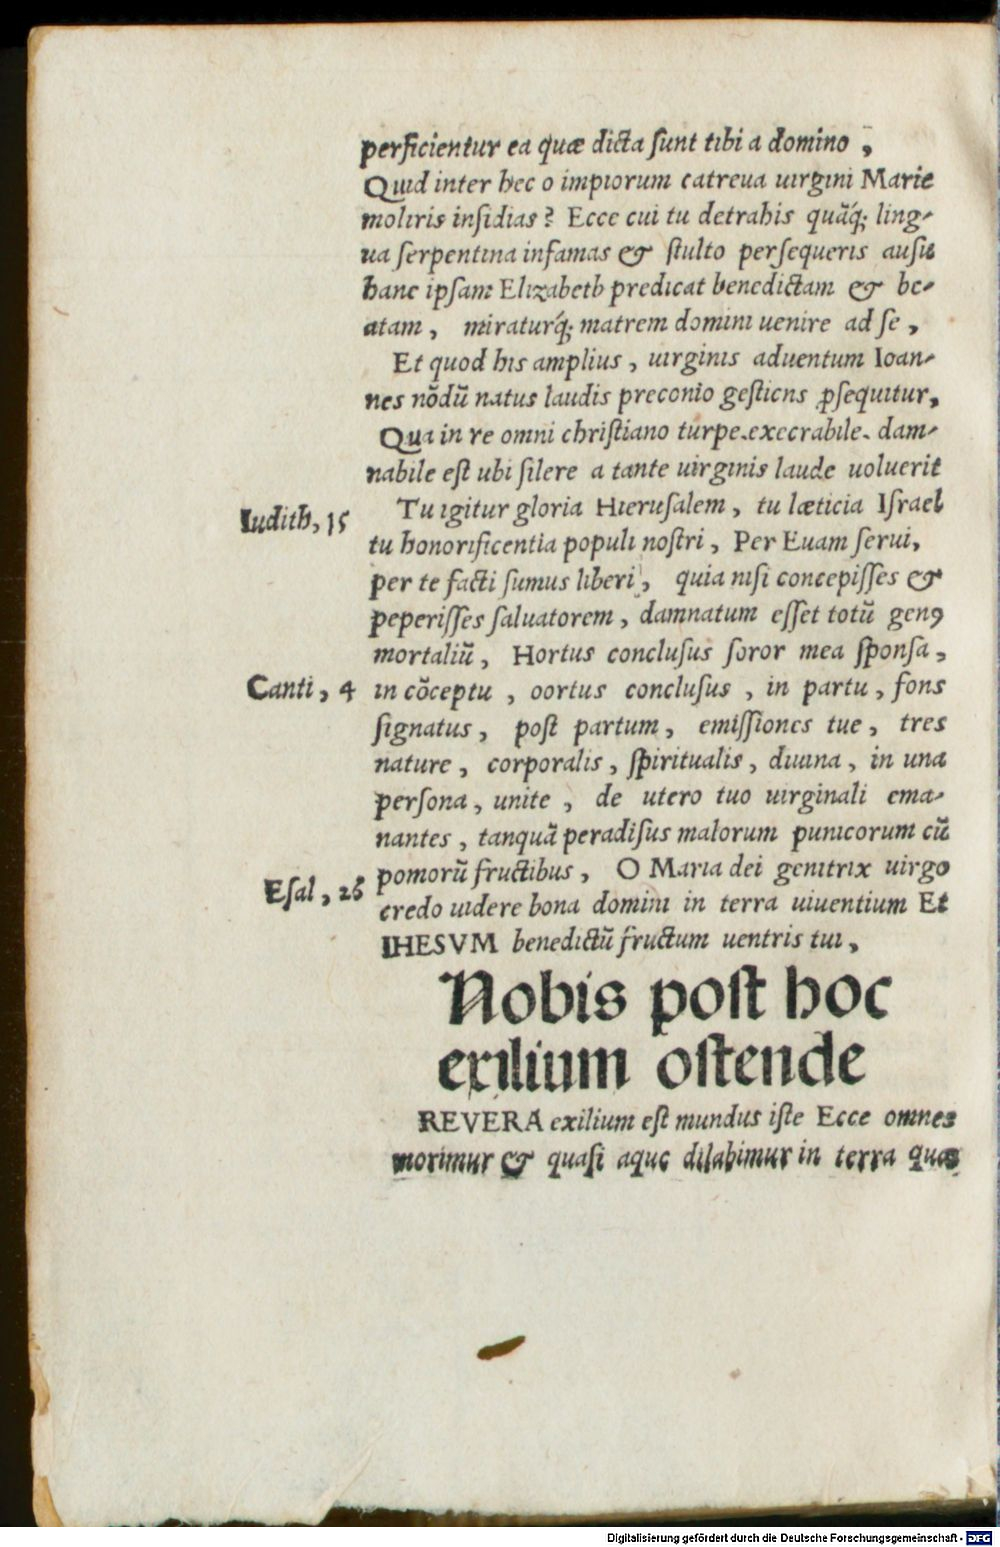 perficientur ea quæ dicta ſunt tibi a domino ,
Quid inter hec o impiorum catreua uirgini Marie
moliris inſidias? Ecce cui tu detrahis quāq́; ling-
ua ſerpentina infamas & ſtulto perſequeris auſu
hanc ipſam Elizabeth predicat benedictam & be-
atam , miraturq́; matrem domini uenire ad ſe ,
Et quod his amplius , uirginis aduentum Ioan-
nes nōdū natus laudis preconio geſtiens ꝑſequitur,
Qua in re omni chriſtiano turpe.execrabile. dam-
nabile eſt ubi ſilere a tante uirginis laude uoluerit
Iudith, 15
Tu igitur gloria Hieruſalem , tu læticia Iſrael
tu honorificentia populi noſtri , Per Euam ſerui,
per te facti ſumus liberi , quia niſi concepiſſes &
peperiſſes ſaluatorem , damnatum eſſet totū genꝯ
mortaliū , Hortus concluſus ſoror mea ſponſa ,
Canti , 4
in cōceptu , oortus concluſus , in partu , fons
ſignatus , poſt partum , emiſſiones tue , tres
nature , corporalis , ſpiritualis , diuina , in una
perſona , unite , de utero tuo uirginali ema-
nantes , tanquā peradiſus malorum punicorum cū
pomorū fructibus , O Maria dei genitrix uirgo
Eſai , 26
credo uidere bona domini in terra uiuentium Et
IHESVM benedictū fructum uentris tui ,
Nobis poſt hoc
exilium oſtende
REVERA exilium eſt mundus iſte Ecce omnes
morimur & quaſi aque dilabimur in terra quæ
Digitalisierung gefördert durch die Deutsche Forschungsgemeinschaft - DFG